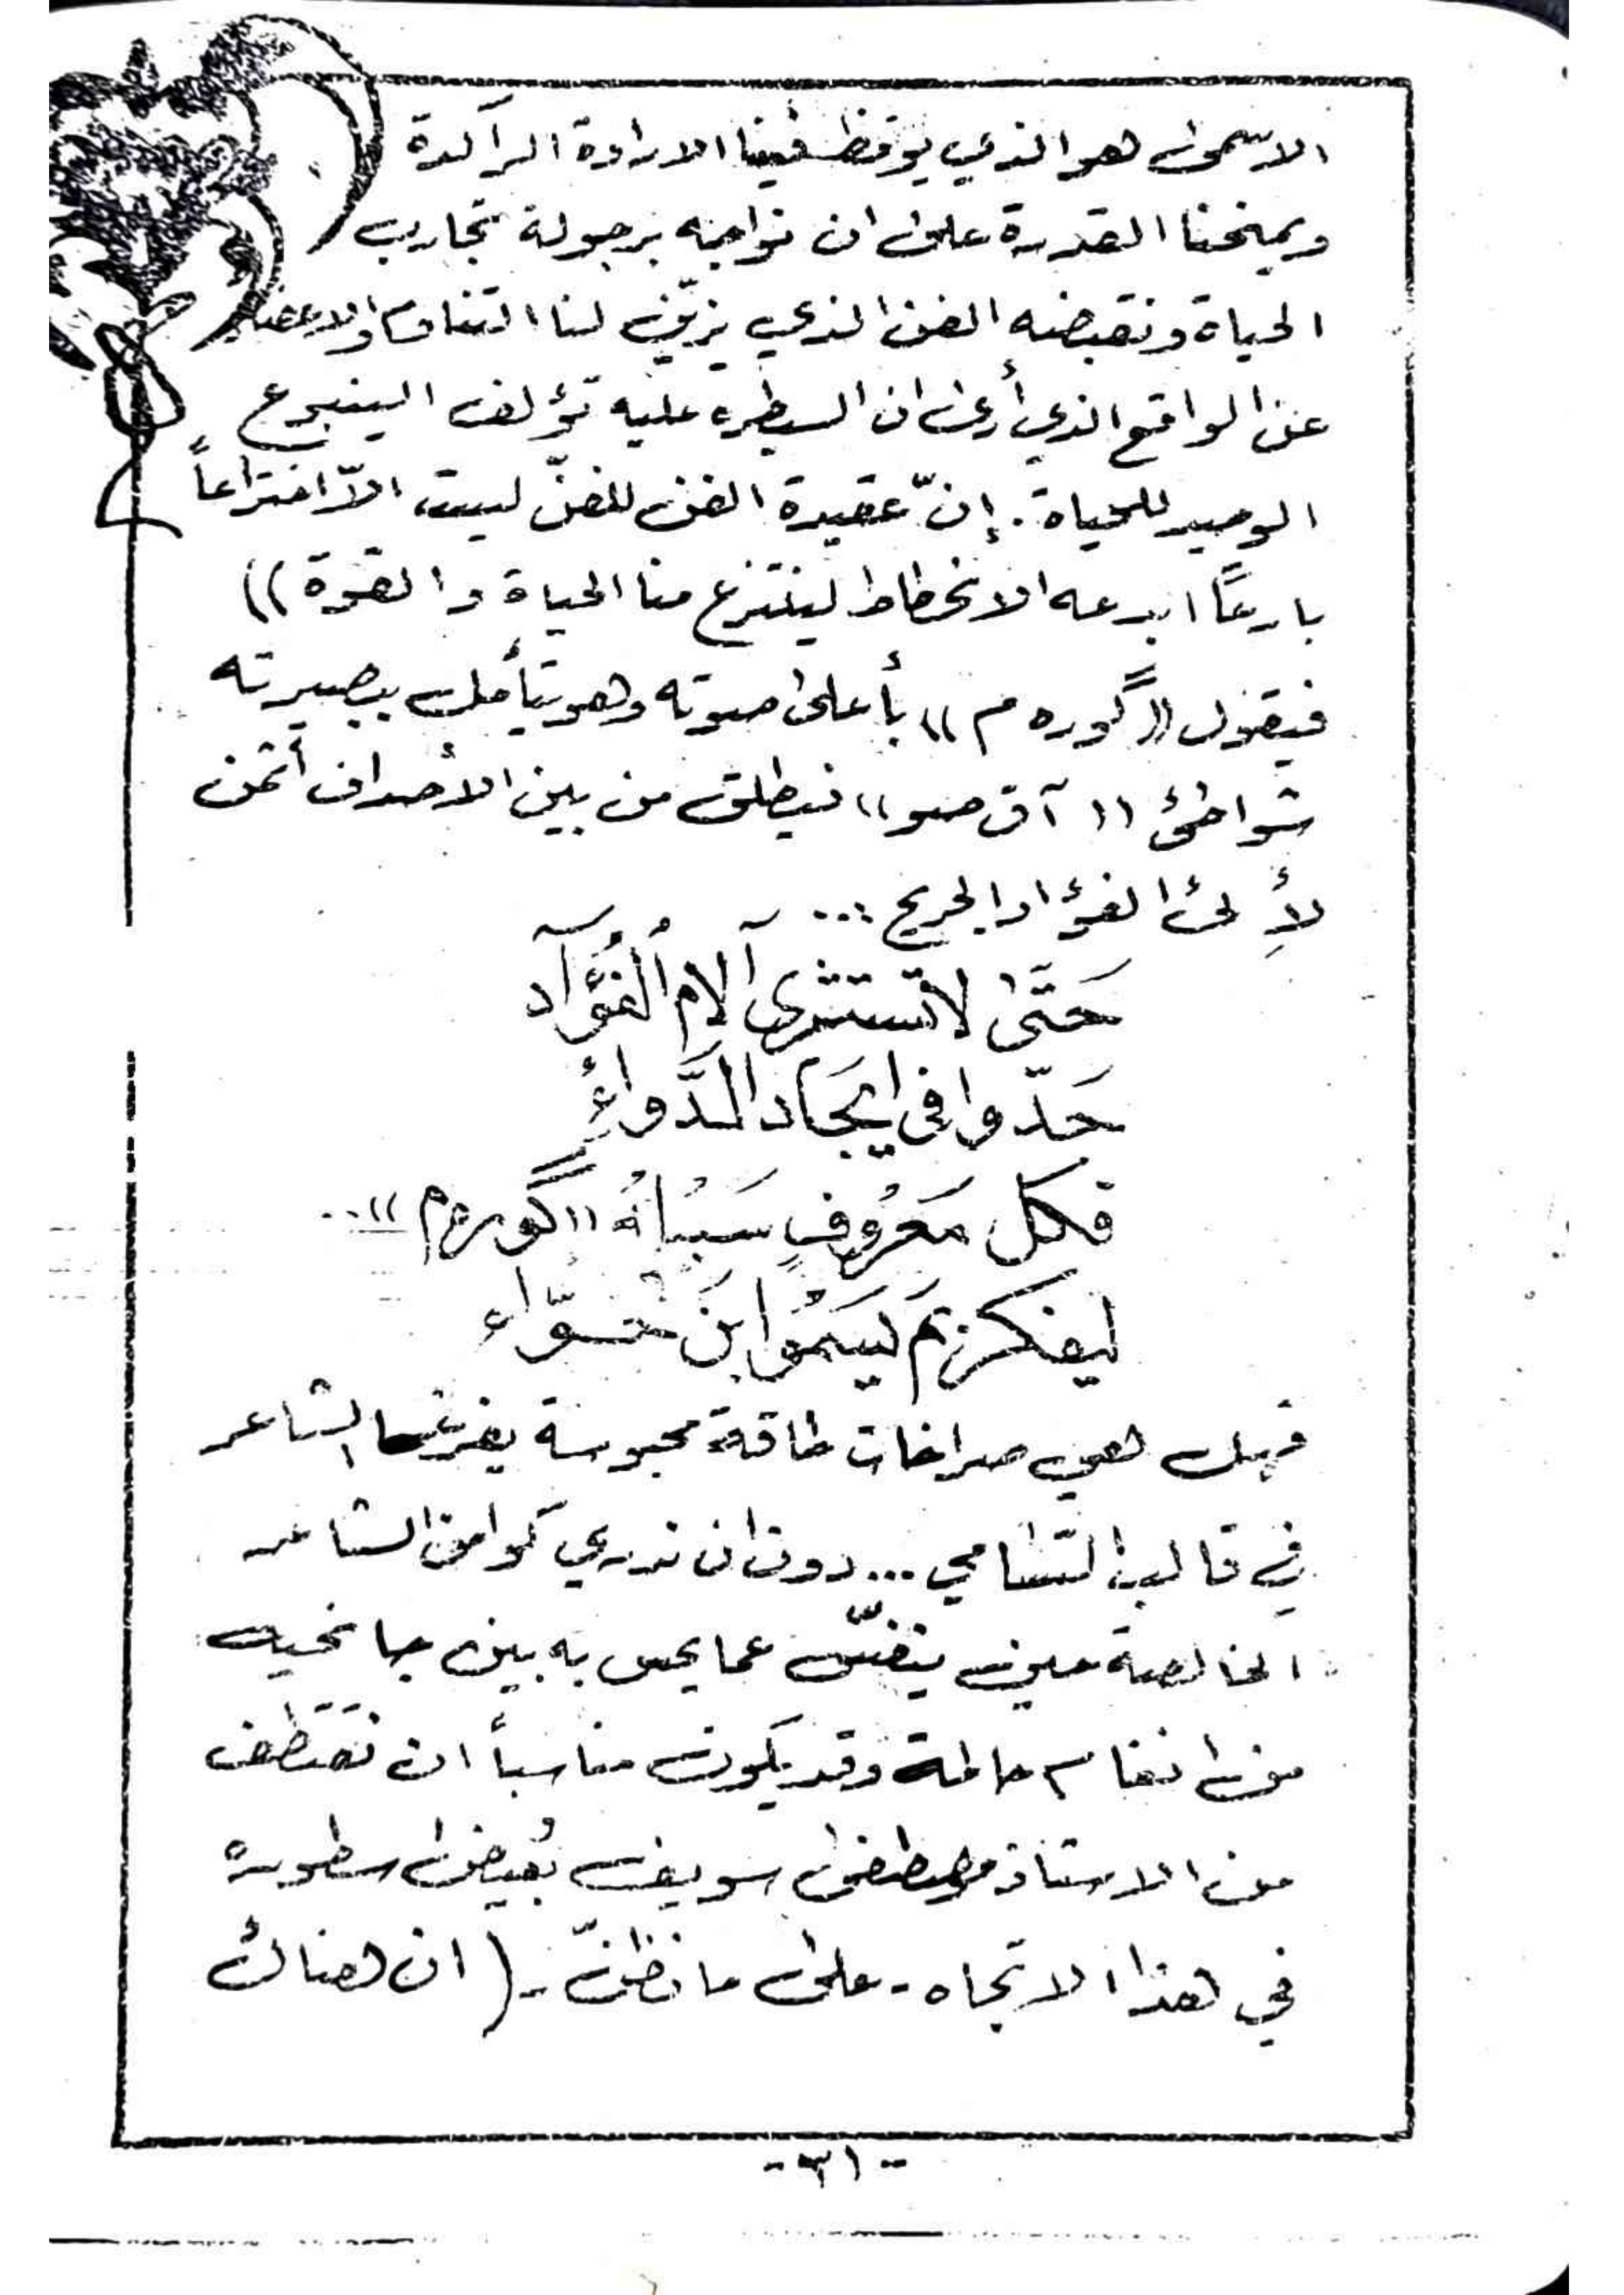 الاسمى هو الذي يوقظ فينا الارادة الراكدة
ويمنحنا القدرة على ان نواجه برجولة تجارب
الحياة ونقيضه الفن الذي يزيّن لنا
عن الواقع الذي أرى ان السيطره عليه تؤلف الينبوع
الوحيد للحياة . إنّ عقيدة الفن للفنّ ليست الاّ اختراعاً
بارعاً ابدعه الانحطاط لينتزع منا الحياة والقوة ))
فيقول (( گوره م )) بأعلى صوته وهو يتأمل ببصيرته
شواطئ (( آق صو )) فيطلق من بين الأصداف أثمن
لألئ الفؤاد الجريح ...
حَتَّى لا تستشرى آلام الْفُؤَآد
جَدّوا فى ايجَاد الدَّواءِ
فكل مَعْرُوفٍ (( گوره م )) ...
ليفكرنم ليسَمُو ابنَ حَوّاء
فهل هي صراخات طاقة محبوسة يفرغها الشاعر
في قالب التسامي ... دون ان ندري كوامن الشاعر
الخالصة حين ينفّس عما يحس به بين جانحيه
من انغام حالمة وقد يكون مناسباً ان نقتطف
من الاستاذ مصطفى سويف بُعيض سطوره
في هذا الاتجاه - على ما نظنّ - ( ان هناك
- ٣١ -